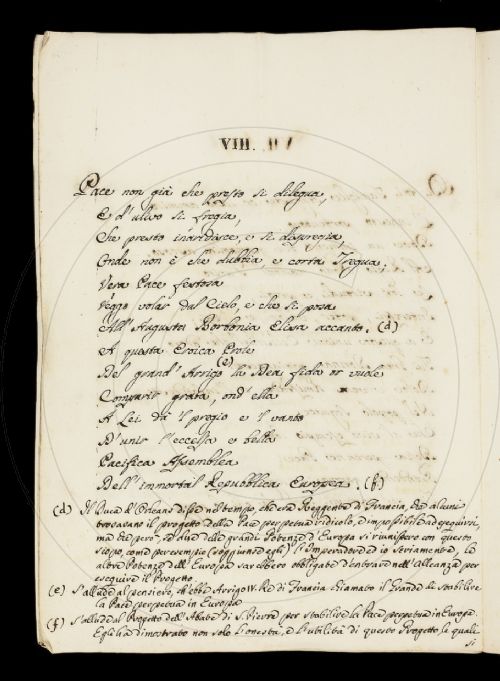 VIII.
Pace non già che presto si dilegua,
E d'ulivo si fregia,
Che presto inaridisce, e si dispregia,
Onde non è che dubbia, e corta Tregua,
Vera Pace festosa
Veggo volar dal Cielo, e che si posa
All'Augusta Borbonia Elisa accanto. (d)
A questa Eroica Prole
Del grand'Arrigo (e) la Dea fida or vuole
Comparir grata, ond'ella
A Lei dà il pregio e il vanto
D'unir l'eccelsa e bella
Pacifica Assemblea
Dell'immortal Repubblica Europea. (f)
(d) Il Duca d'Orleans disse nel tempo, che era Reggente di Francia, che alcuni
trovavano il progetto della Pace perpetua ridicolo, ed impossibile ad eseguirsi,
ma che però, se due delle grandi Potenze d'Europa si riunissero con questo
scopo, come per esempio (soggiunse egli) l'Imperadore ed io seriamente, le
altre Potenze dell'Europa sarebbero obbligate d'entrare nell'Alleanza per
eseguire il Progetto.
(e) S'allude al pensiero, ch'ebbe Arrigo IV. Re di Francia chiamato il Grande di stabilire
la Pace perpetua in Europa
(f) S'allude al Progetto dell'Abate di S. Pierre per stabilire la Pace perpetua in Europa.
Egli ha dimostrato non solo l'onestà, e l'utilità di questo Progetto, le quali
si